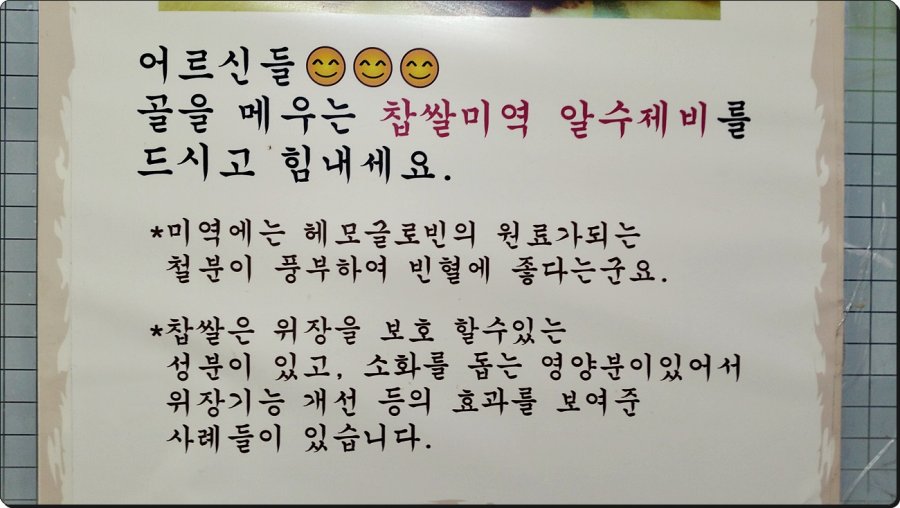 어르신들😊😊😊
골을 메우는 찹쌀미역 알수제비를
드시고 힘내세요.
*미역에는 헤모글로빈의 원료가되는
철분이 풍부하여 빈혈에 좋다는군요.
*찹쌀은 위장을 보호 할수있는
성분이 있고, 소화를 돕는 영양분이있어서
위장기능 개선 등의 효과를 보여준
사례들이 있습니다.